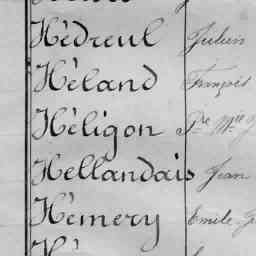 Hédreul Julien
Héland François
Héligon Pre Mie
Hellandais Jean
Hémery Emile